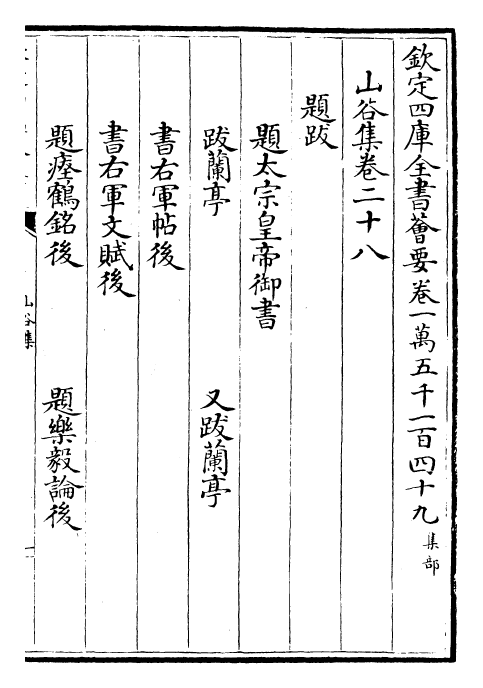 欽定四庫全書薈要卷一萬五千一百四十九集部
山谷集卷二十八
題跋
題太宗皇帝御書
跋蘭亭 又跋蘭亭
書右軍帖後
書右軍文賦後
題瘞鶴銘後 題樂毅論後
山谷集
一